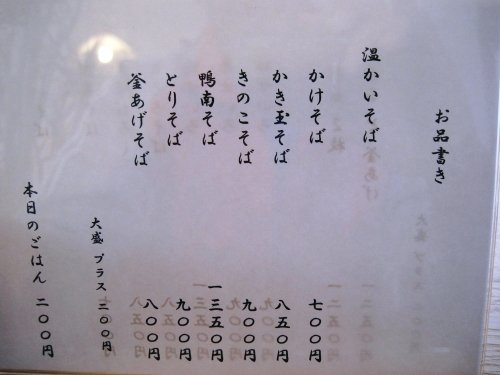 お品書き
温かいそば
かけそば 七〇〇円
かき玉そば 八五〇円
きのこそば 九〇〇円
鴨南そば 一三五〇円
とりそば 九〇〇円
釜あげそば 八〇〇円
大盛 プラス 二〇〇円
本日のごはん 二〇〇円